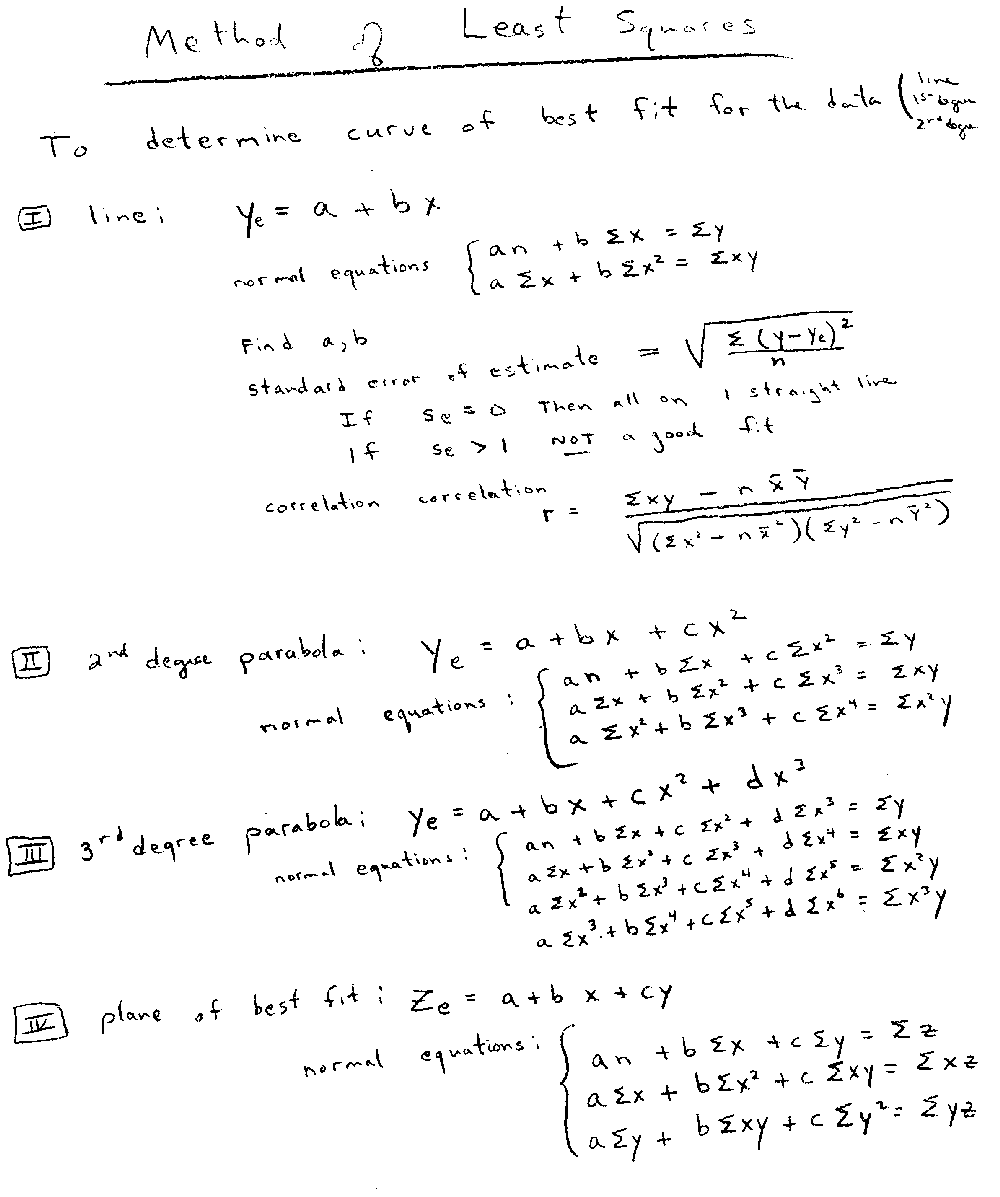 Method of Least Squares
To determine curve of best fit for the data (line
1st degree
2nd degree
I line: Ye = a + bx
normal equations { an + b Σx = Σy
a Σx + b Σx² = Σxy
Find a, b
standard error of estimate = √(Σ(y-Ye)²/n)
If Se = 0 Then all on 1 straight line
If Se > 1 NOT a good fit
correlation correlation
r = (Σxy - n x̄ ȳ) / √((Σx² - n x̄²)(Σy² - n ȳ²))
II 2nd degree parabola: Ye = a + bx + cx²
normal equations: { an + b Σx + c Σx² = Σy
a Σx + b Σx² + c Σx³ = Σxy
a Σx² + b Σx³ + c Σx⁴ = Σx²y
III 3rd degree parabola: Ye = a + bx + cx² + dx³
normal equations: { an + b Σx + c Σx² + d Σx³ = Σy
a Σx + b Σx² + c Σx³ + d Σx⁴ = Σxy
a Σx² + b Σx³ + c Σx⁴ + d Σx⁵ = Σx²y
a Σx³ + b Σx⁴ + c Σx⁵ + d Σx⁶ = Σx³y
IV plane of best fit: Ze = a + bx + cy
normal equations: { an + b Σx + c Σy = Σz
a Σx + b Σx² + c Σxy = Σxz
a Σy + b Σxy + c Σy² = Σyz